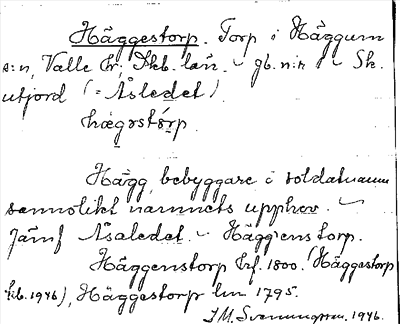 Häggestorp. Torp i Häggum
s:n, Valle hr, Skb. län. – gb. n:r 1 – Sk.
utjord (= Åsledet).
hægostórp
Hägg, bebyggare i soldatnamn
sannolikt namnets upphov. –
Jämf Åsaledet. – Häggens torp.
Häggenstorp Jrf. 1800. (Häggestorp
kb. 1946), Häggestorp lm 1795.
J M. Svennungsson. 1946.